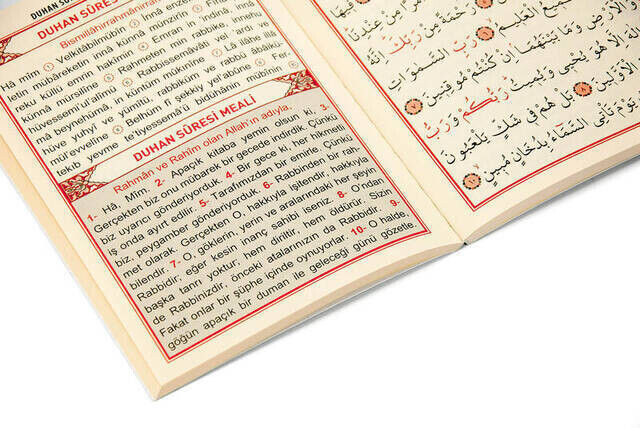 DUHAN SÛRESİ
DUHAN SÛRESİ
Bismillâhirrahmânirrahîm
Hâ mîm ① Velkitâbilmübîn ② İnnâ enzelnâhü fî
letim mübâreketin innâ künnâ münzirîn ③ Fîhâ
reku küllü emrin hakîmin ④ Emran min 'ındinâ, innâ
künnâ mürsilîne ⑤ Rahmeten mir rabbike, innehû
hüvessemi'ul'alîmü ⑥ Rabbissemâvâti vel'ardı ve
mâ beynehümâ, in küntüm mûkınîne ⑦ Lâ ilâhe illâ
hüve yuhyî ve yümîtü, rabbüküm ve rabbü âbâikü-
mül'evvelîne ⑧ Belhüm fî şekkiy yel'abûne ⑨ Fer-
tekıb yevme te'tiyessemâ'ü bidühânin mübînin ⑩
DUHAN SÛRESİ MEALİ
Rahmân ve Rahîm olan Allah'ın adıyla.
1- Hâ, Mîm. 2- Apaçık kitaba yemin olsun ki, 3-
Gerçekten biz onu mübarek bir gecede indirdik. Çünkü
biz uyarıcı gönderiyorduk. 4- Bir gece ki, her hikmetli
iş onda ayırt edilir. 5- Tarafımızdan bir emirle. Çünkü
biz, peygamber gönderiyorduk. 6- Rabbinden bir rah-
met olarak. Gerçekten O, hakkıyla işitendir, hakkıyla
bilendir. 7- O, göklerin, yerin ve aralarındaki her şeyin
Rabbidir, eğer kesin inanç sahibi iseniz. 8- O'ndan
başka tanrı yoktur, hem diriltir, hem öldürür. Sizin
de Rabbinizdir, önceki atalarınızın da Rabbidir. 9-
Fakat onlar bir şüphe içinde oynuyorlar. 10- O halde,
göğün apaçık bir duman ile geleceği günü gözetle.
فِيهَا
أَمْرًا مِنْ عِنْدِنَا
رَحْمَةً مِنْ رَبِّكَ إِنَّهُ
رَبِّ السَّمَوَاتِ
وَالْأَرْضِ وَمَا بَيْنَهُمَا إِنْ كُنْتُمْ مُوقِنِينَ
لَا إِلَهَ إِلَّا هُوَ يُحْيِي وَيُمِيتُ رَبُّكُمْ وَرَبُّ
الْأَوَّلِينَ ٨ بَلْ هُمْ فِي شَكٍّ يَلْعَبُونَ
يَوْمَ تَأْتِي السَّمَاءُ بِدُخَانٍ مُبِينٍ ١٠